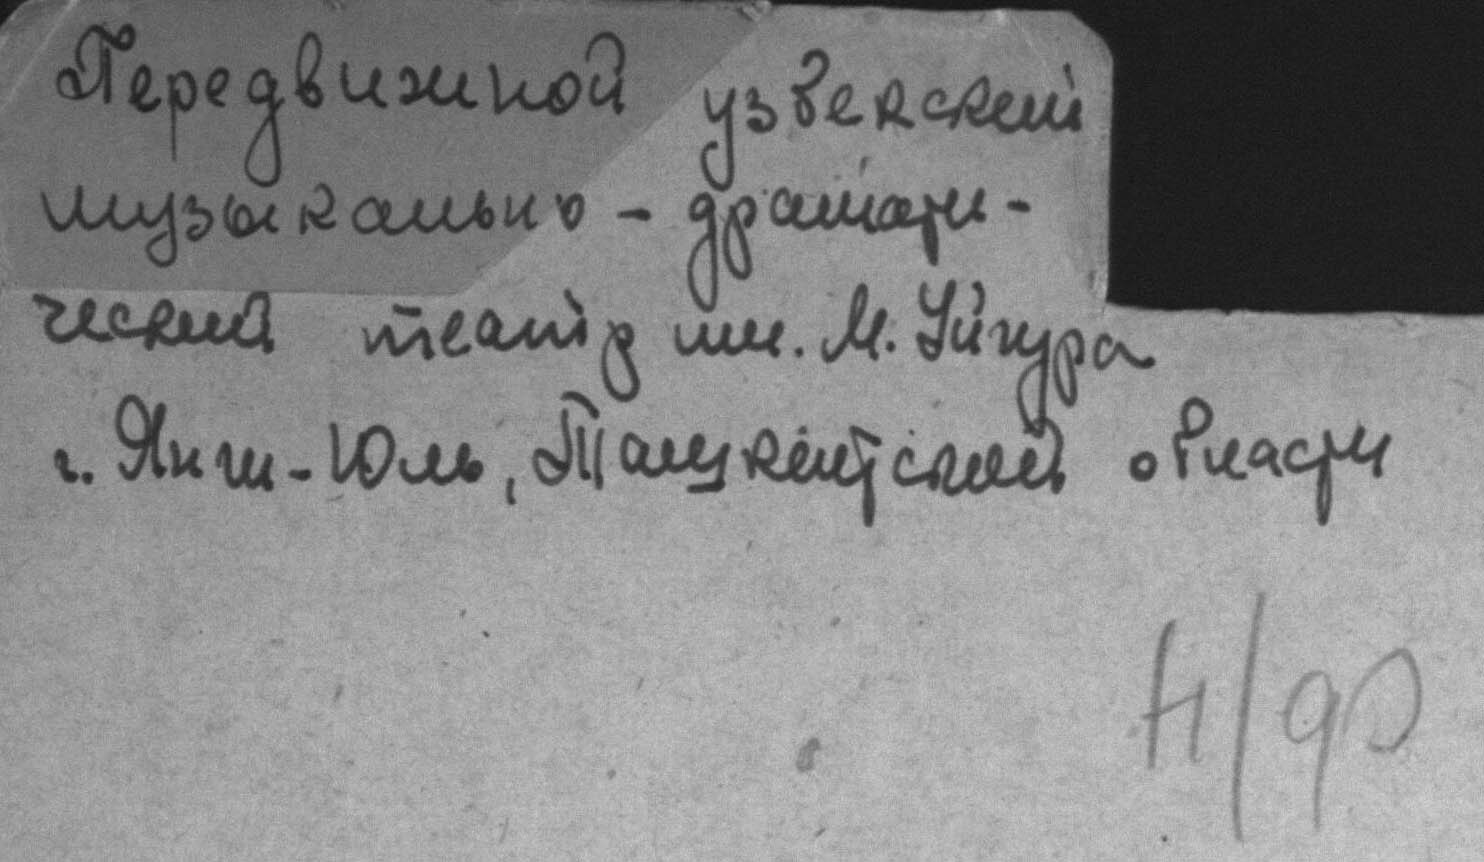 Передвижной узбекский
музыкально - драмати-
ческий театр им. М. Уйгура
г. Янги-Юль, Ташкентской области
н/ф